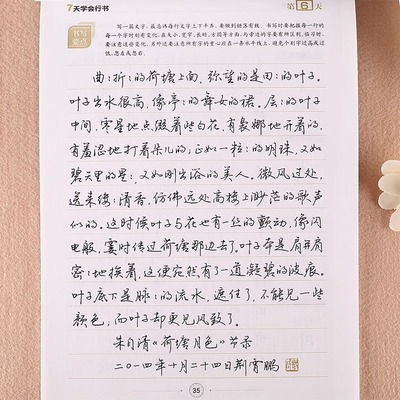 7天学会行书
第6天
书写要点
曲:折:的荷塘上面,弥望的是田:的叶子。
叶子出水很高,像亭:的舞女的裙。层:的叶子
中间,零星地点缀着些白花,有袅娜地开着的,
有羞涩地打着朵儿的;正如一粒:的明珠,又如
碧天里的星:,又如刚出浴的美人。微风过处,
送来缕:清香,仿佛远处高楼上渺茫的歌声
似的。这时候叶子与花也有一丝的颤动,像闪
电般,霎时传过荷塘那边去了。叶子本是肩并肩
密:地挨着,这便宛然有了一道凝碧的波痕。
叶子底下是脉:的流水,遮住了,不能见一些
颜色;而叶子却更见风致了。
朱自清《荷塘月色》节录
二〇一四年十月二十四日荆霄鹏
35